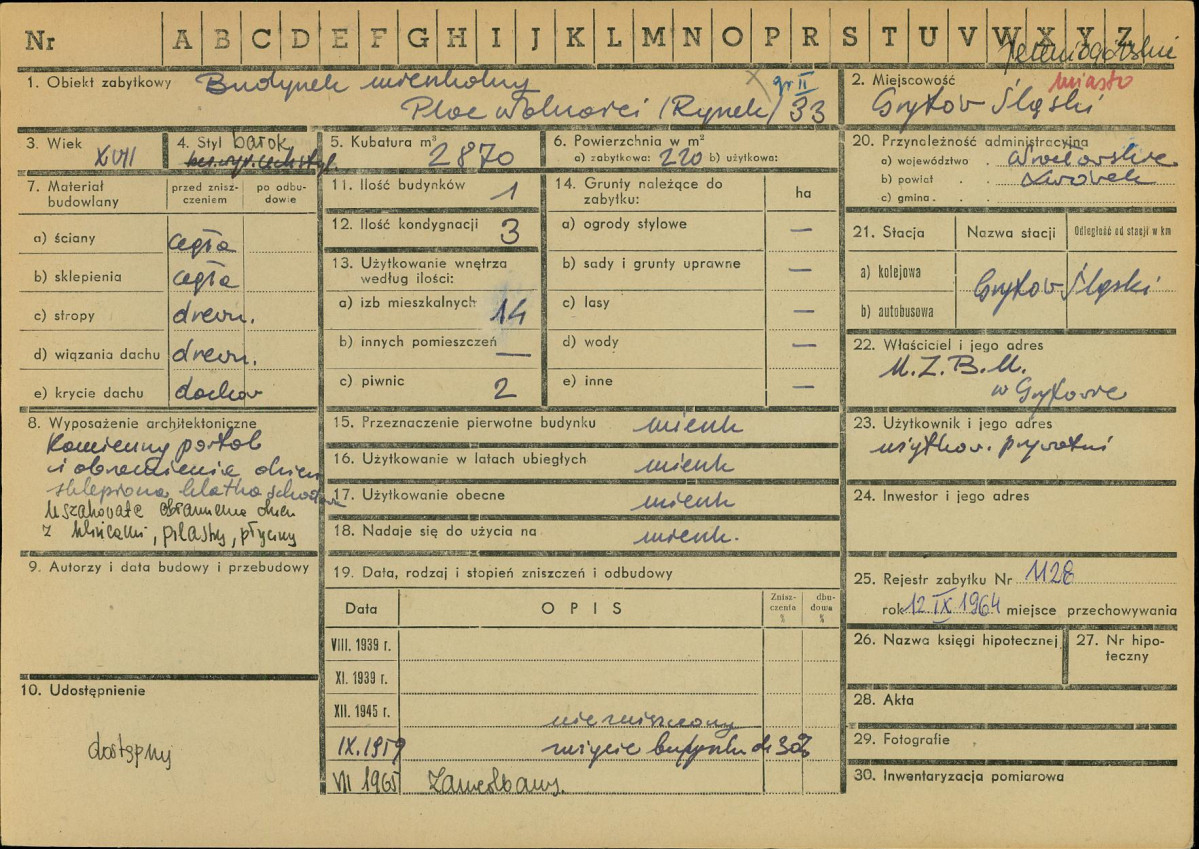 Nr A B C D E F G H I J K L M N O P R S T U V W X Y Z
Jeleniogórskie
1. Obiekt zabytkowy Budynek mieszkalny
Plac Wolności (Rynek) 33
gr II
2. Miejscowość miasto
Gryfów Śląski
3. Wiek XVII
4. Styl barok
5. Kubatura m³ 2870
6. Powierzchnia w m²
a) zabytkowa: 220 b) użytkowa:
20. Przynależność administracyjna
a) województwo . wrocławskie
b) powiat . . Lwówek
c) gmina . . .
7. Materiał budowlany
przed zniszczeniem
po odbudowie
a) ściany cegła
b) sklepienia cegła
c) stropy drewn.
d) wiązania dachu drewn.
e) krycie dachu dachów
8. Wyposażenie architektoniczne
Kamienny portal
i obramienia okien
sklepiona klatka schodowa
uszakowate obramienia okien
z kluczami, pilastry, płyciny
9. Autorzy i data budowy i przebudowy
10. Udostępnienie
dostępny
11. Ilość budynków 1
12. Ilość kondygnacji 3
13. Użytkowanie wnętrza
według ilości:
a) izb mieszkalnych 14
b) innych pomieszczeń —
c) piwnic 2
14. Grunty należące do
zabytku: ha
a) ogrody stylowe —
b) sady i grunty uprawne —
c) lasy —
d) wody —
e) inne —
15. Przeznaczenie pierwotne budynku mieszk
16. Użytkowanie w latach ubiegłych mieszk
17. Użytkowanie obecne mieszk
18. Nadaje się do użycia na mieszk.
19. Data, rodzaj i stopień zniszczeń i odbudowy
Data OPIS Zniszczenia % dbudowa %
VIII. 1939 r.
XI. 1939 r.
XII. 1945 r. nie zniszczony
IX.1959 zużycie budynku do 30%
VII 1965 Zaniedbany.
21. Stacja Nazwa stacji Odległość od stacji w km
a) kolejowa
b) autobusowa
Gryfów Śląski
22. Właściciel i jego adres
M.Z.B.M.
w Gryfowie
23. Użytkownik i jego adres
użytkow. prywatni
24. Inwestor i jego adres
25. Rejestr zabytku Nr 1128
rok 12 IX 1964 miejsce przechowywania
26. Nazwa księgi hipotecznej
27. Nr hipoteczny
28. Akta
29. Fotografie
30. Inwentaryzacja pomiarowa